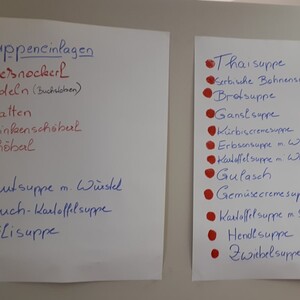 uppeneinlagen
eisnockerl
deln (Buchstaben)
atten
inkenschöberl
höberl
utsuppe m. Würstel
uch-Kartoffelsuppe
lisuppe
Thaisuppe
serbische Bohnensu
Brotsuppe
Ganslsuppe
Kürbiscremesuppe
Erbsensuppe m. W
Kartoffelsuppe m. W
Gulasch
Gemüsecremesupp
Kartoffelsuppe m.
Hendlsuppe
Zwiebelsuppe